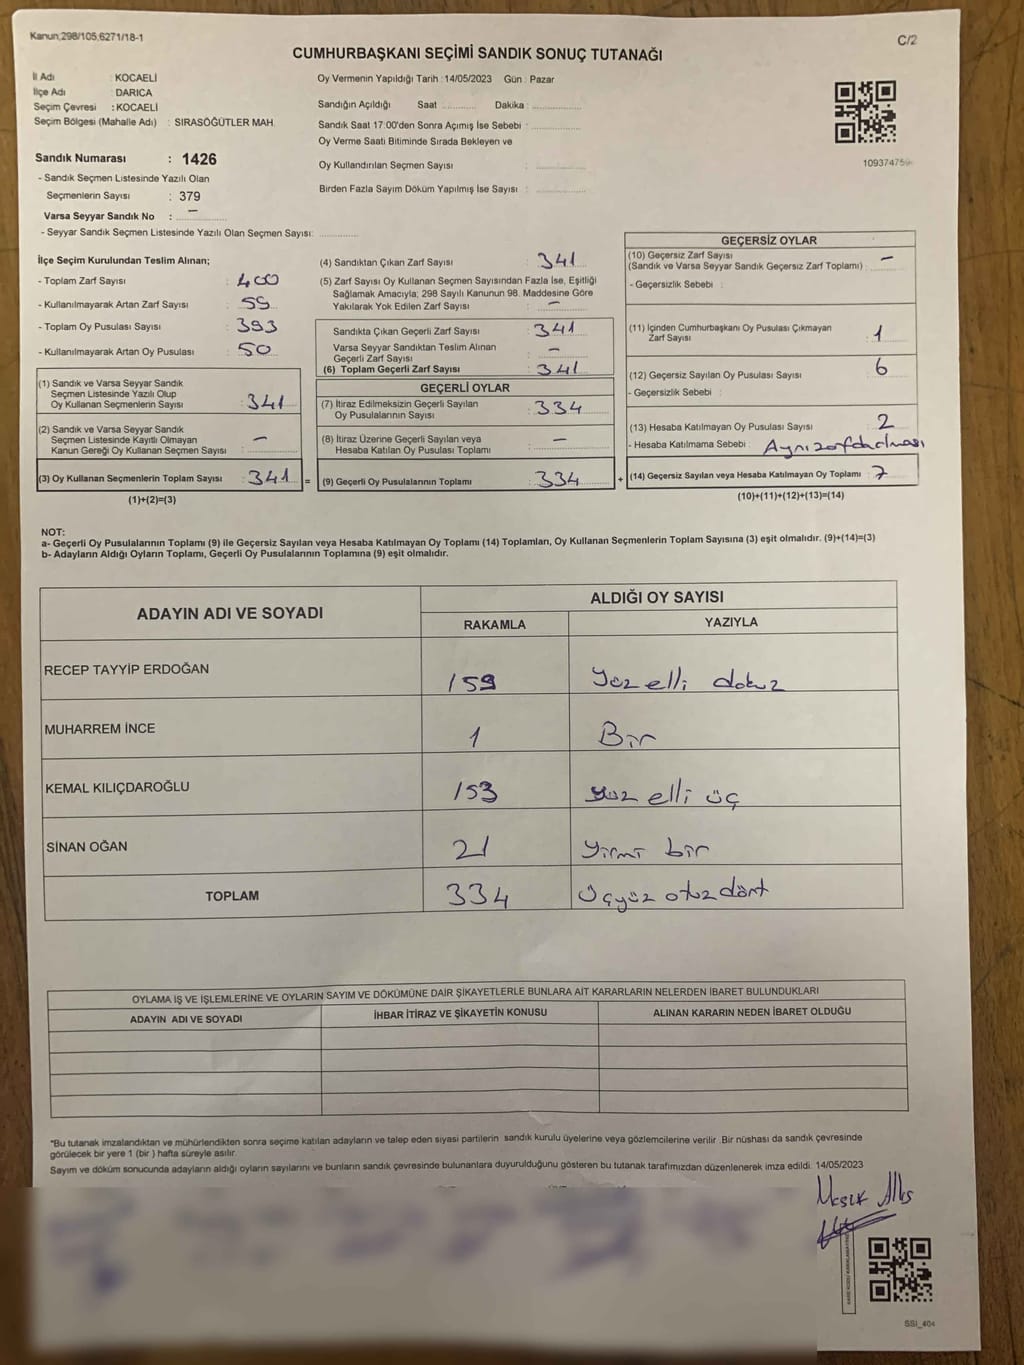 Kanun,298/105,6271/18-1
C/2
CUMHURBAŞKANI SEÇİMİ SANDIK SONUÇ TUTANAĞI
İl Adı : KOCAELİ
İlçe Adı : DARICA
Seçim Çevresi : KOCAELİ
Seçim Bölgesi (Mahalle Adı) : SIRASÖĞÜTLER MAH.
Sandık Numarası : 1426
- Sandık Seçmen Listesinde Yazılı Olan
Seçmenlerin Sayısı : 379
Varsa Seyyar Sandık No : –
- Seyyar Sandık Seçmen Listesinde Yazılı Olan Seçmen Sayısı:
Oy Vermenin Yapıldığı Tarih : 14/05/2023 Gün : Pazar
Sandığın Açıldığı Saat Dakika :
Sandık Saat 17:00'den Sonra Açımış İse Sebebi :
Oy Verme Saati Bitiminde Sırada Bekleyen ve
Oy Kullandırılan Seçmen Sayısı :
Birden Fazla Sayım Döküm Yapılmış İse Sayısı :
İlçe Seçim Kurulundan Teslim Alınan;
- Toplam Zarf Sayısı : 400
- Kullanılmayarak Artan Zarf Sayısı : 59
- Toplam Oy Pusulası Sayısı : 393
- Kullanılmayarak Artan Oy Pusulası : 50
(1) Sandık ve Varsa Seyyar Sandık
Seçmen Listesinde Yazılı Olup
Oy Kullanan Seçmenlerin Sayısı : 341
(2) Sandık ve Varsa Seyyar Sandık
Seçmen Listesinde Kayıtlı Olmayan
Kanun Gereği Oy Kullanan Seçmen Sayısı : –
(3) Oy Kullanan Seçmenlerin Toplam Sayısı : 341 =
(1)+(2)=(3)
(4) Sandıktan Çıkan Zarf Sayısı : 341
(5) Zarf Sayısı Oy Kullanan Seçmen Sayısından Fazla İse, Eşitliği
Sağlamak Amacıyla; 298 Sayılı Kanunun 98. Maddesine Göre
Yakılarak Yok Edilen Zarf Sayısı : –
Sandıkta Çıkan Geçerli Zarf Sayısı : 341
Varsa Seyyar Sandıktan Teslim Alınan
Geçerli Zarf Sayısı : –
(6) Toplam Geçerli Zarf Sayısı : 341
GEÇERLİ OYLAR
(7) İtiraz Edilmeksizin Geçerli Sayılan
Oy Pusulalarının Sayısı : 334
(8) İtiraz Üzerine Geçerli Sayılan veya
Hesaba Katılan Oy Pusulası Toplamı : –
(9) Geçerli Oy Pusulalarının Toplamı : 334 +
GEÇERSİZ OYLAR
(10) Geçersiz Zarf Sayısı
(Sandık ve Varsa Seyyar Sandık Geçersiz Zarf Toplamı) : –
- Geçersizlik Sebebi :
(11) İçinden Cumhurbaşkanı Oy Pusulası Çıkmayan
Zarf Sayısı : 1
(12) Geçersiz Sayılan Oy Pusulası Sayısı : 6
- Geçersizlik Sebebi :
(13) Hesaba Katılmayan Oy Pusulası Sayısı : 2
- Hesaba Katılmama Sebebi : Aynı zarfda olması
(14) Geçersiz Sayılan veya Hesaba Katılmayan Oy Toplamı : 7
(10)+(11)+(12)+(13)=(14)
NOT:
a- Geçerli Oy Pusulalarının Toplamı (9) ile Geçersiz Sayılan veya Hesaba Katılmayan Oy Toplamı (14) Toplamları, Oy Kullanan Seçmenlerin Toplam Sayısına (3) eşit olmalıdır. (9)+(14)=(3)
b- Adayların Aldığı Oyların Toplamı, Geçerli Oy Pusulalarının Toplamına (9) eşit olmalıdır.
ADAYIN ADI VE SOYADI ALDIĞI OY SAYISI
RAKAMLA YAZIYLA
RECEP TAYYİP ERDOĞAN 159 Yüz elli dokuz
MUHARREM İNCE 1 Bir
KEMAL KILIÇDAROĞLU 153 yüz elli üç
SİNAN OĞAN 21 yirmi bir
TOPLAM 334 Üçyüz otuz dört
OYLAMA İŞ VE İŞLEMLERİNE VE OYLARIN SAYIM VE DÖKÜMÜNE DAİR ŞİKAYETLERLE BUNLARA AİT KARARLARIN NELERDEN İBARET BULUNDUKLARI
ADAYIN ADI VE SOYADI İHBAR İTİRAZ VE ŞİKAYETİN KONUSU ALINAN KARARIN NEDEN İBARET OLDUĞU
*Bu tutanak imzalandıktan ve mühürlendikten sonra seçime katılan adayların ve talep eden siyasi partilerin sandık kurulu üyelerine veya gözlemcilerine verilir .Bir nüshası da sandık çevresinde
görülecek bir yere 1 (bir ) hafta süreyle asılır.
Sayım ve döküm sonucunda adayların aldığı oyların sayılarını ve bunların sandık çevresinde bulunanlara duyurulduğunu gösteren bu tutanak tarafımızdan düzenlenerek imza edildi. 14/05/2023
SSİ_404